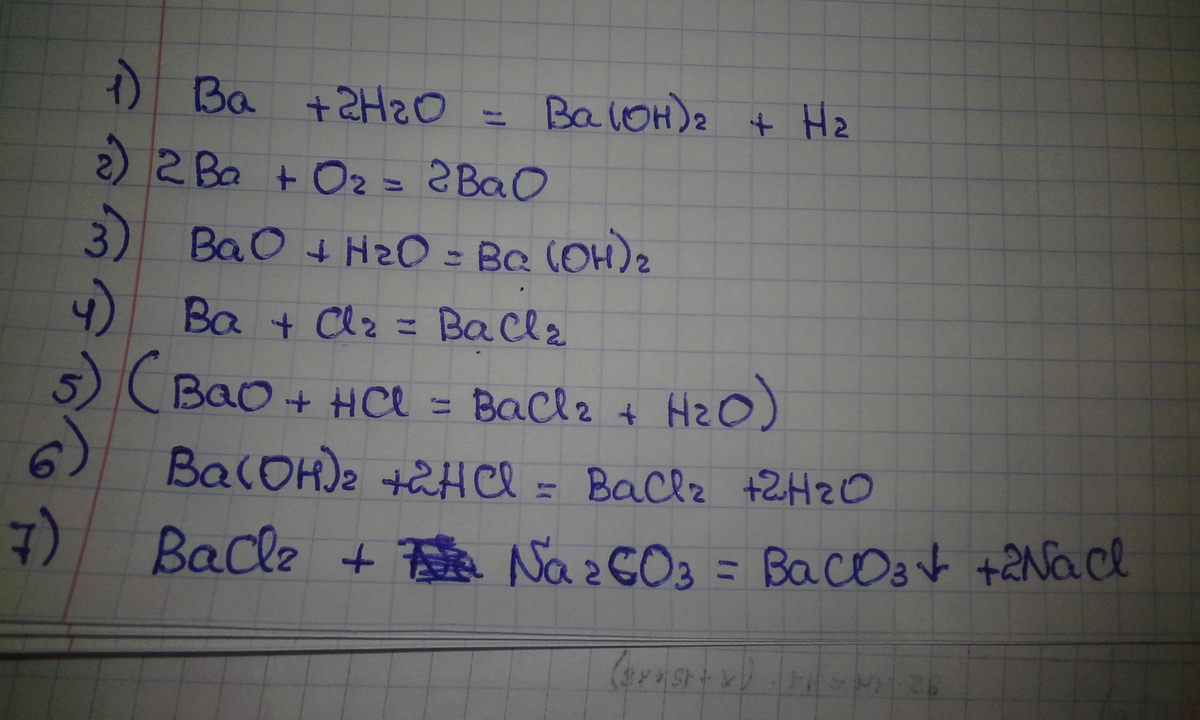 1) Ba + 2H2O = Ba(OH)2 + H2
2) 2Ba + O2 = 2BaO
3) BaO + H2O = Ba(OH)2
4) Ba + Cl2 = BaCl2
5) (BaO + HCl = BaCl2 + H2O)
6) Ba(OH)2 + 2HCl = BaCl2 + 2H2O
7) BaCl2 + Na2CO3 = BaCO3↓ + 2NaCl